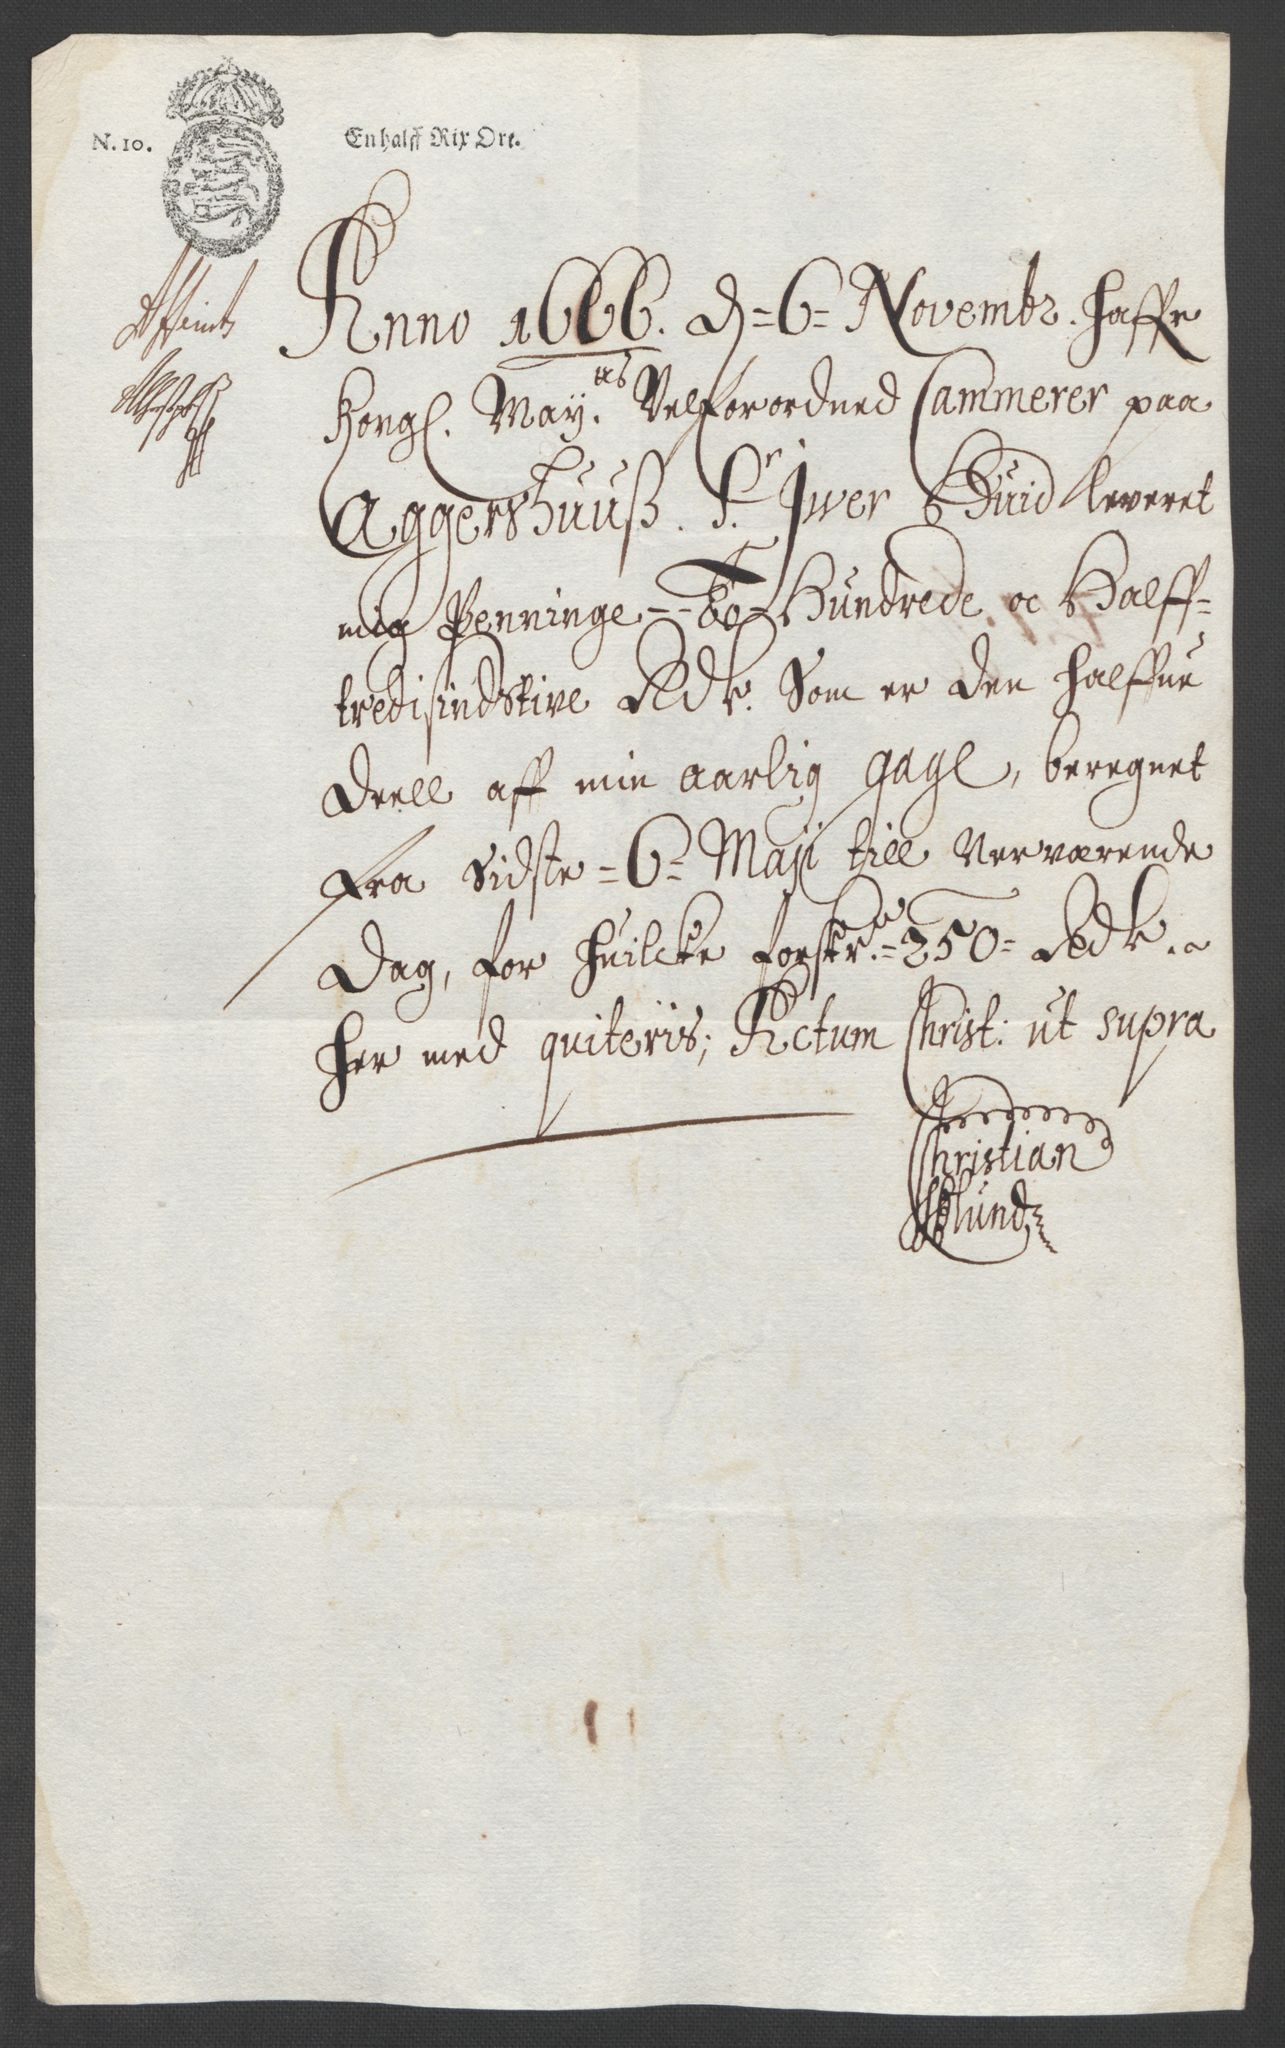 N. 10.
En halff Rix Ort.
Anno 1666. d = 6 = Novembr. haffr
Kongl. May.as Velforordned Cammerer paa
Aggershuuß. Sr Iwer Huid leveret
mig Penninge - - To Hundrede oc Halff-
tredisindstive Rdlr. Som er den halffue
Deell aff min aarlig gage, beregnet
fra Sidste = 6 = Maji till Nerværende
Dag, for huilcke forskr.ne = 250 = Rdlr.
her med quiteris; Actum Christ: ut supra
Christian